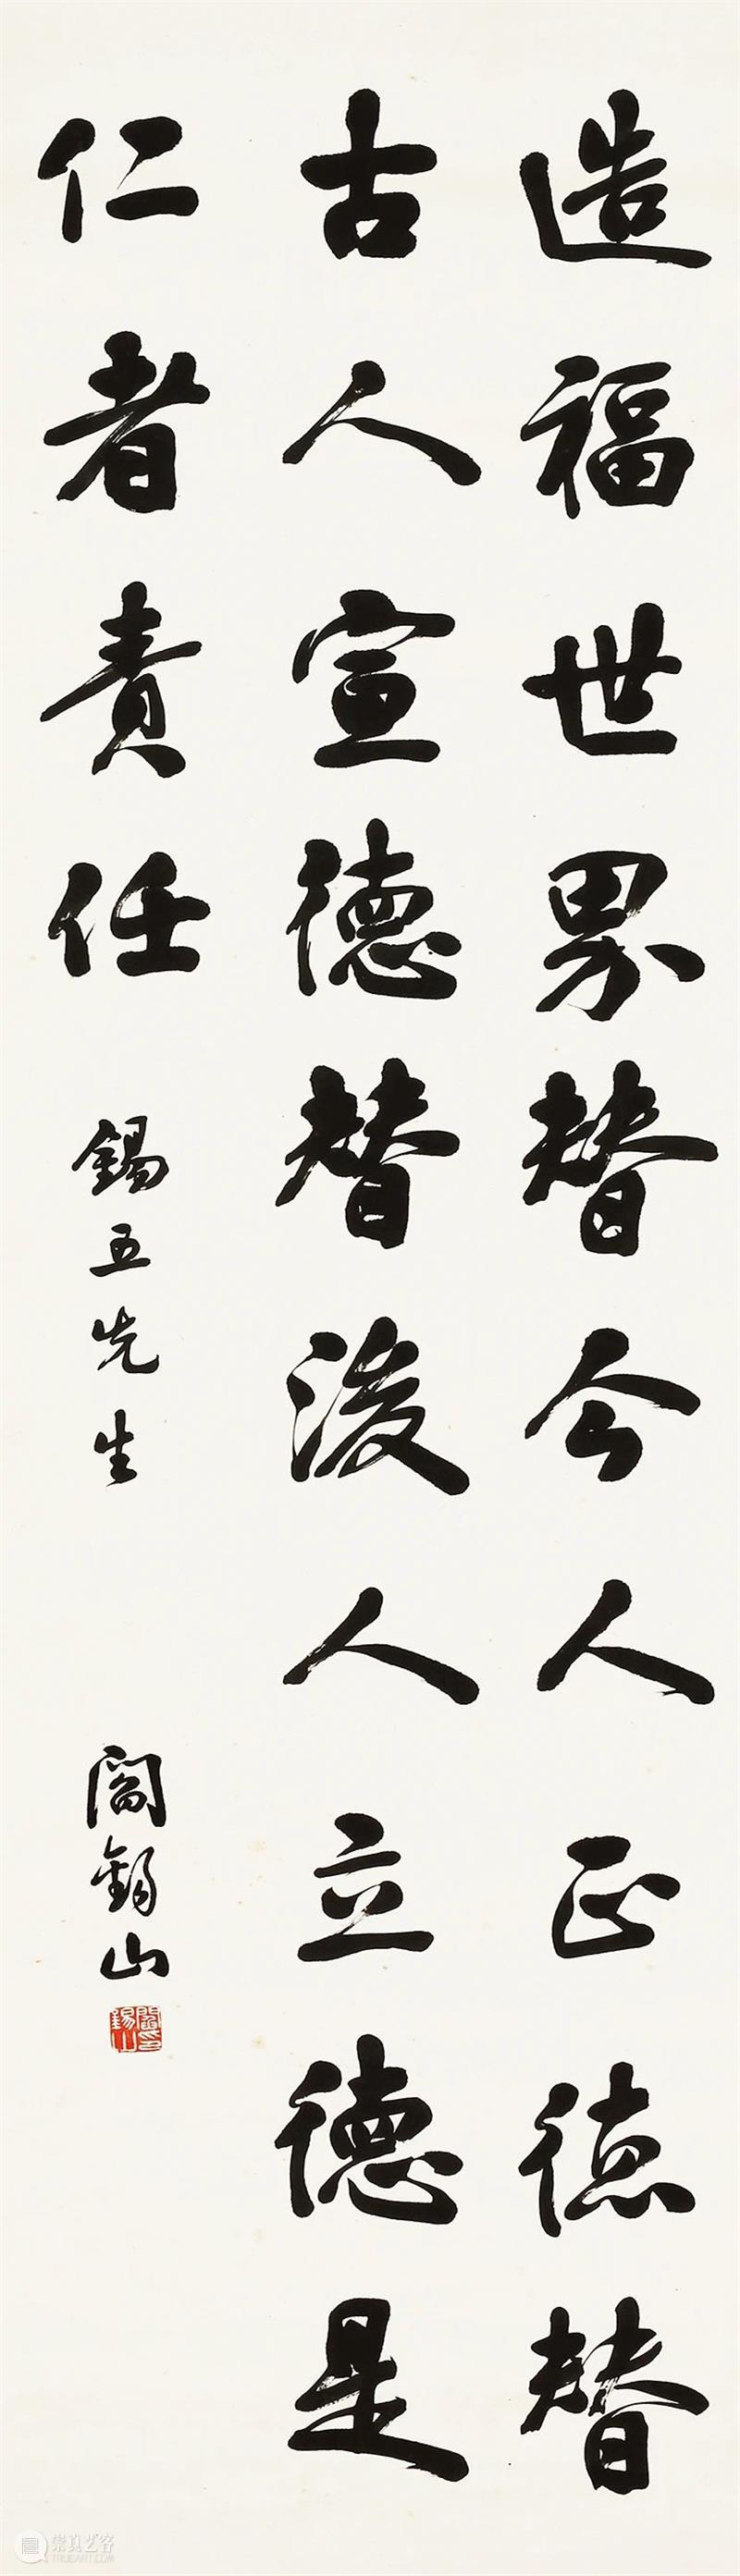 造福世界替今人正德替
古人宣德替後人立德是
仁者責任 錫五先生 閻錫山
閻錫山印
崇真艺客
TRUEART.COM